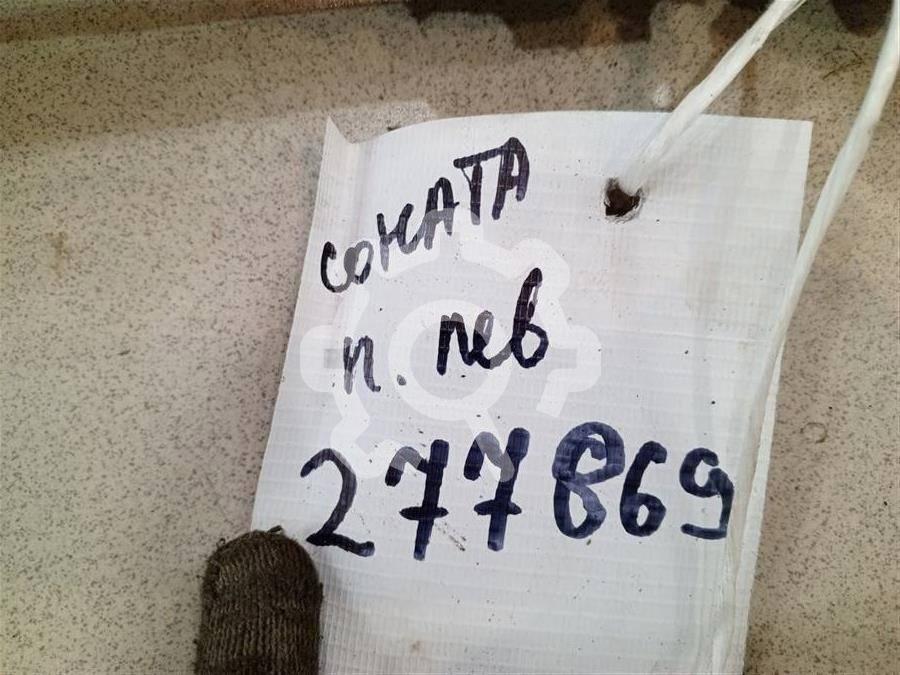 СОНАТА
п. лев
277869